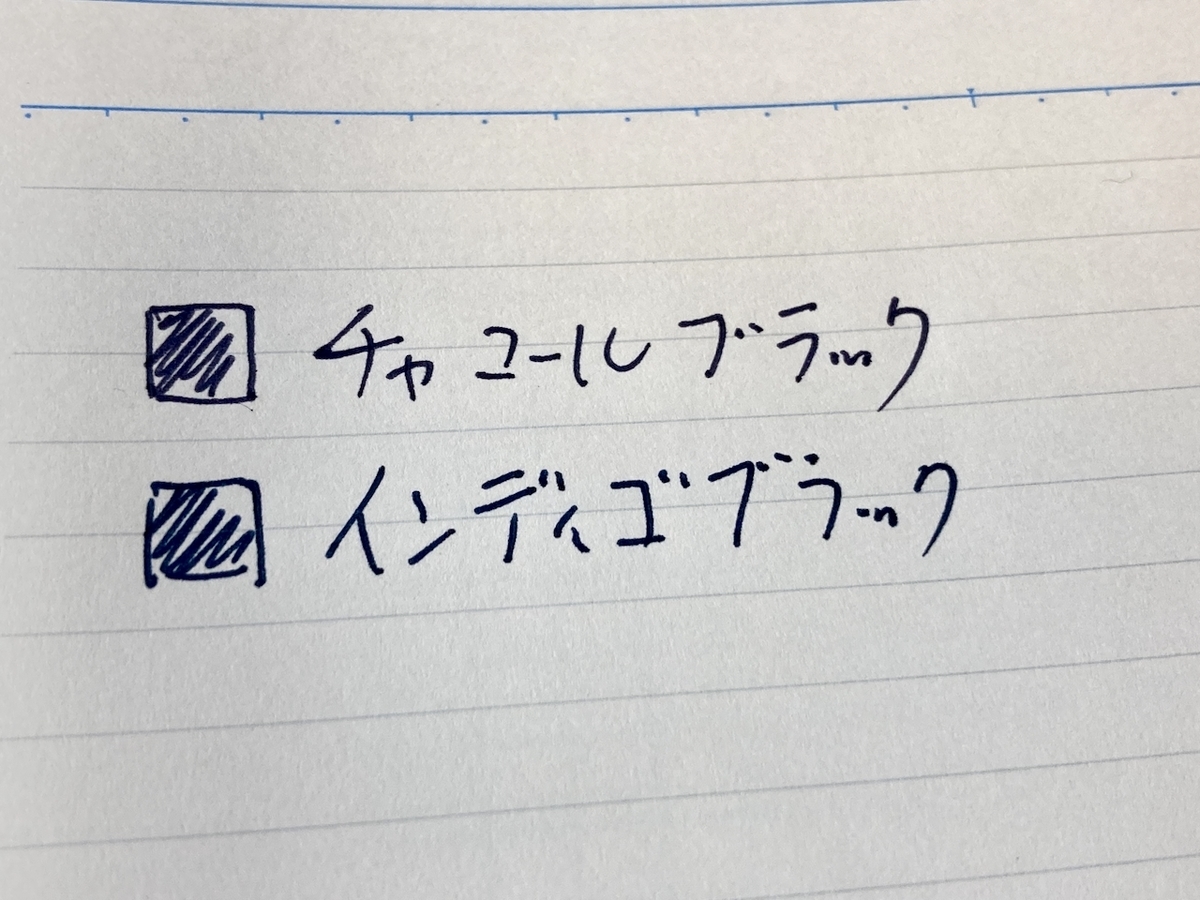 チャコールブラック
インディゴブラック